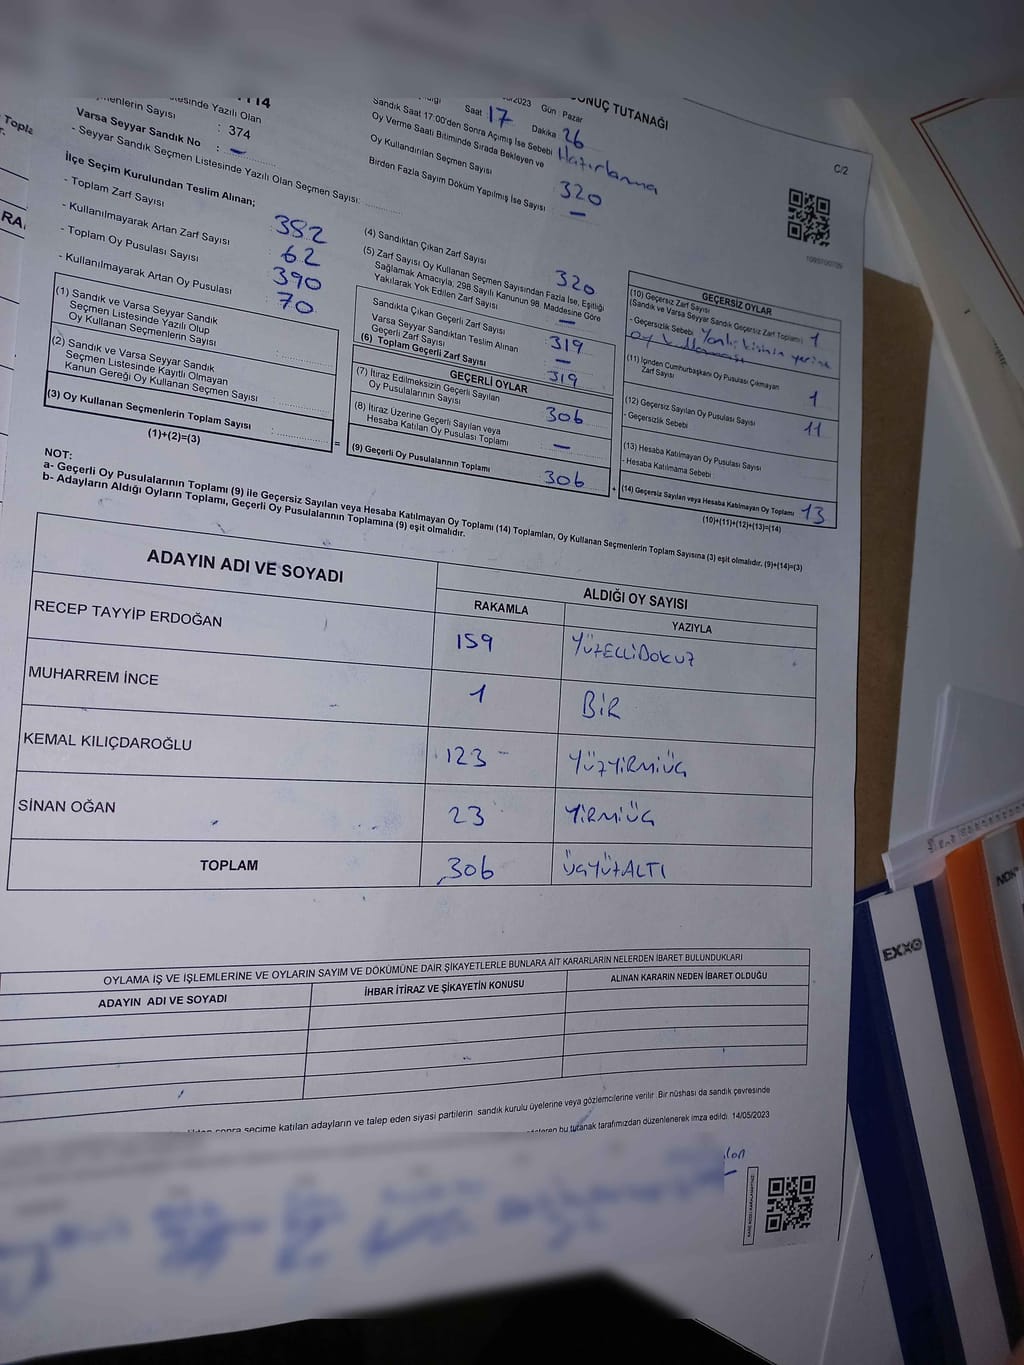 SONUÇ TUTANAĞI
C/2
Yazılı Olan
Sayısı : 374
Varsa Seyyar Sandık No : –
- Seyyar Sandık Seçmen Listesinde Yazılı Olan Seçmen Sayısı:
Saat 17 Gün Pazar
Dakika 26
Sandık Saat 17:00'den Sonra Açılmış İse Sebebi Hazırlanma
Oy Verme Saati Bitiminde Sırada Bekleyen ve
Oy Kullandırılan Seçmen Sayısı 320
Birden Fazla Sayım Döküm Yapılmış İse Sayısı –
İlçe Seçim Kurulundan Teslim Alınan;
- Toplam Zarf Sayısı 382
- Kullanılmayarak Artan Zarf Sayısı 62
- Toplam Oy Pusulası Sayısı 390
- Kullanılmayarak Artan Oy Pusulası : 70
(1) Sandık ve Varsa Seyyar Sandık
Seçmen Listesinde Yazılı Olup
Oy Kullanan Seçmenlerin Sayısı
(2) Sandık ve Varsa Seyyar Sandık
Seçmen Listesinde Kayıtlı Olmayan
Kanun Gereği Oy Kullanan Seçmen Sayısı
(3) Oy Kullanan Seçmenlerin Toplam Sayısı :
(1)+(2)=(3)
(4) Sandıktan Çıkan Zarf Sayısı 320
(5) Zarf Sayısı Oy Kullanan Seçmen Sayısından Fazla İse, Eşitliği
Sağlamak Amacıyla, 298 Sayılı Kanunun 98. Maddesine Göre
Yakılarak Yok Edilen Zarf Sayısı –
Sandıkta Çıkan Geçerli Zarf Sayısı 319
Varsa Seyyar Sandıktan Teslim Alınan
Geçerli Zarf Sayısı –
(6) Toplam Geçerli Zarf Sayısı 319
GEÇERLİ OYLAR
(7) İtiraz Edilmeksizin Geçerli Sayılan
Oy Pusulalarının Sayısı 306
(8) İtiraz Üzerine Geçerli Sayılan veya
Hesaba Katılan Oy Pusulası Toplamı –
(9) Geçerli Oy Pusulalarının Toplamı 306
GEÇERSİZ OYLAR
(10) Geçersiz Zarf Sayısı
(Sandık ve Varsa Seyyar Sandık Geçersiz Zarf Toplamı) 1
- Geçersizlik Sebebi Yanlış kişinin yerine
oy kullanması
(11) İçinden Cumhurbaşkanı Oy Pusulası Çıkmayan
Zarf Sayısı 1
(12) Geçersiz Sayılan Oy Pusulası Sayısı 11
- Geçersizlik Sebebi
(13) Hesaba Katılmayan Oy Pusulası Sayısı
- Hesaba Katılmama Sebebi
(14) Geçersiz Sayılan veya Hesaba Katılmayan Oy Toplamı 13
(10)+(11)+(12)+(13)=(14)
NOT:
a- Geçerli Oy Pusulalarının Toplamı (9) ile Geçersiz Sayılan veya Hesaba Katılmayan Oy Toplamı (14) Toplamları, Oy Kullanan Seçmenlerin Toplam Sayısına (3) eşit olmalıdır. (9)+(14)=(3)
b- Adayların Aldığı Oyların Toplamı, Geçerli Oy Pusulalarının Toplamına (9) eşit olmalıdır.
ADAYIN ADI VE SOYADI ALDIĞI OY SAYISI
RAKAMLA YAZIYLA
RECEP TAYYİP ERDOĞAN 159 YÜZELLİDOKUZ
MUHARREM İNCE 1 BİR
KEMAL KILIÇDAROĞLU 123 YÜZYİRMİÜÇ
SİNAN OĞAN 23 YİRMİÜÇ
TOPLAM 306 ÜÇYÜZALTI
OYLAMA İŞ VE İŞLEMLERİNE VE OYLARIN SAYIM VE DÖKÜMÜNE DAİR ŞİKAYETLERLE BUNLARA AİT KARARLARIN NELERDEN İBARET BULUNDUKLARI
ADAYIN ADI VE SOYADI İHBAR İTİRAZ VE ŞİKAYETİN KONUSU ALINAN KARARIN NEDEN İBARET OLDUĞU
sonra seçime katılan adayların ve talep eden siyasi partilerin sandık kurulu üyelerine veya gözlemcilerine verilir. Bir nüshası da sandık çevresinde
bu tutanak tarafımızdan düzenlenerek imza edildi. 14/05/2023
EXXO